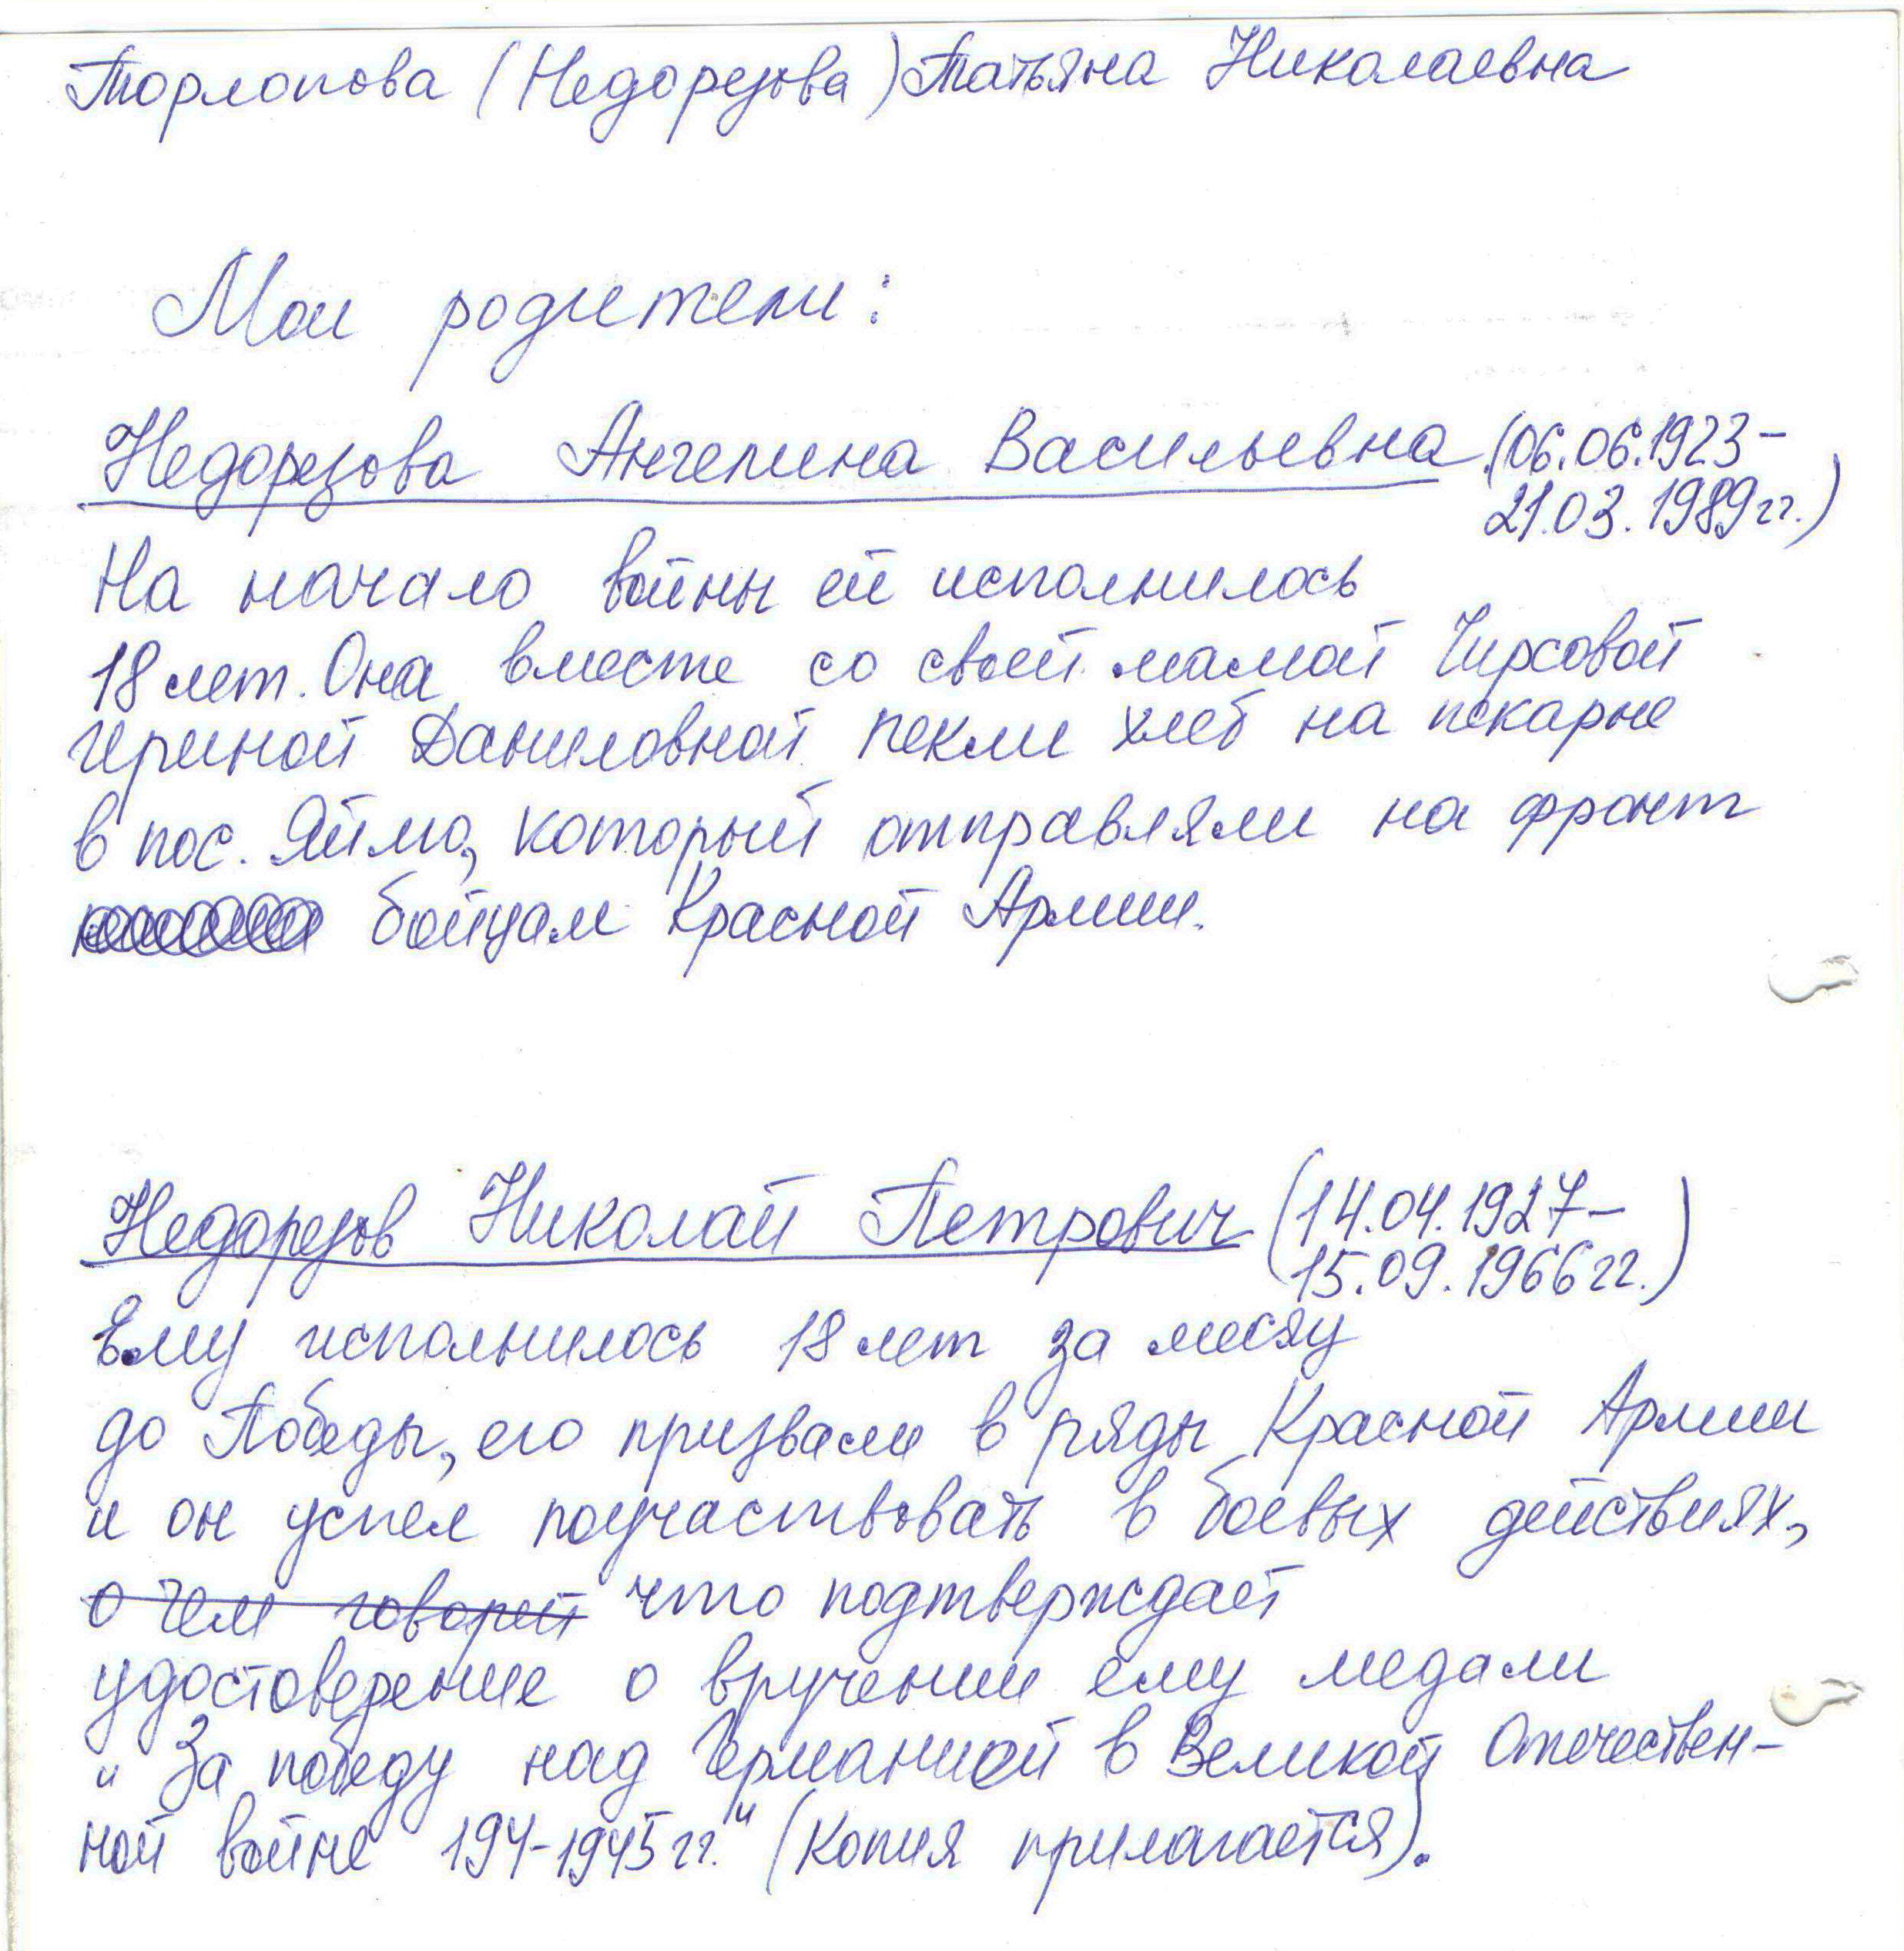 Торлопова (Недорезова) Татьяна Николаевна
Мои родители:
Недорезова Ангелина Васильевна (06.06.1923-
21.03.1989гг.)
На начало войны ей исполнилось
18 лет. Она вместе со своей мамой Чирсовой
Ириной Даниловной пекли хлеб на пекарне
в пос. Яйма, который отправляли на фронт
бойцам Красной Армии.
Недорезов Николай Петрович (14.04.1927-
15.09.1966гг.)
Ему исполнилось 18 лет за месяц
до Победы, его призвали в ряды Красной Армии
и он успел поучаствовать в боевых действиях,
о чем говорит что подтверждает
удостоверение о вручении ему медали
"За победу над Германией в Великой Отечествен-
ной войне 194-1945гг." (Копия прилагается).